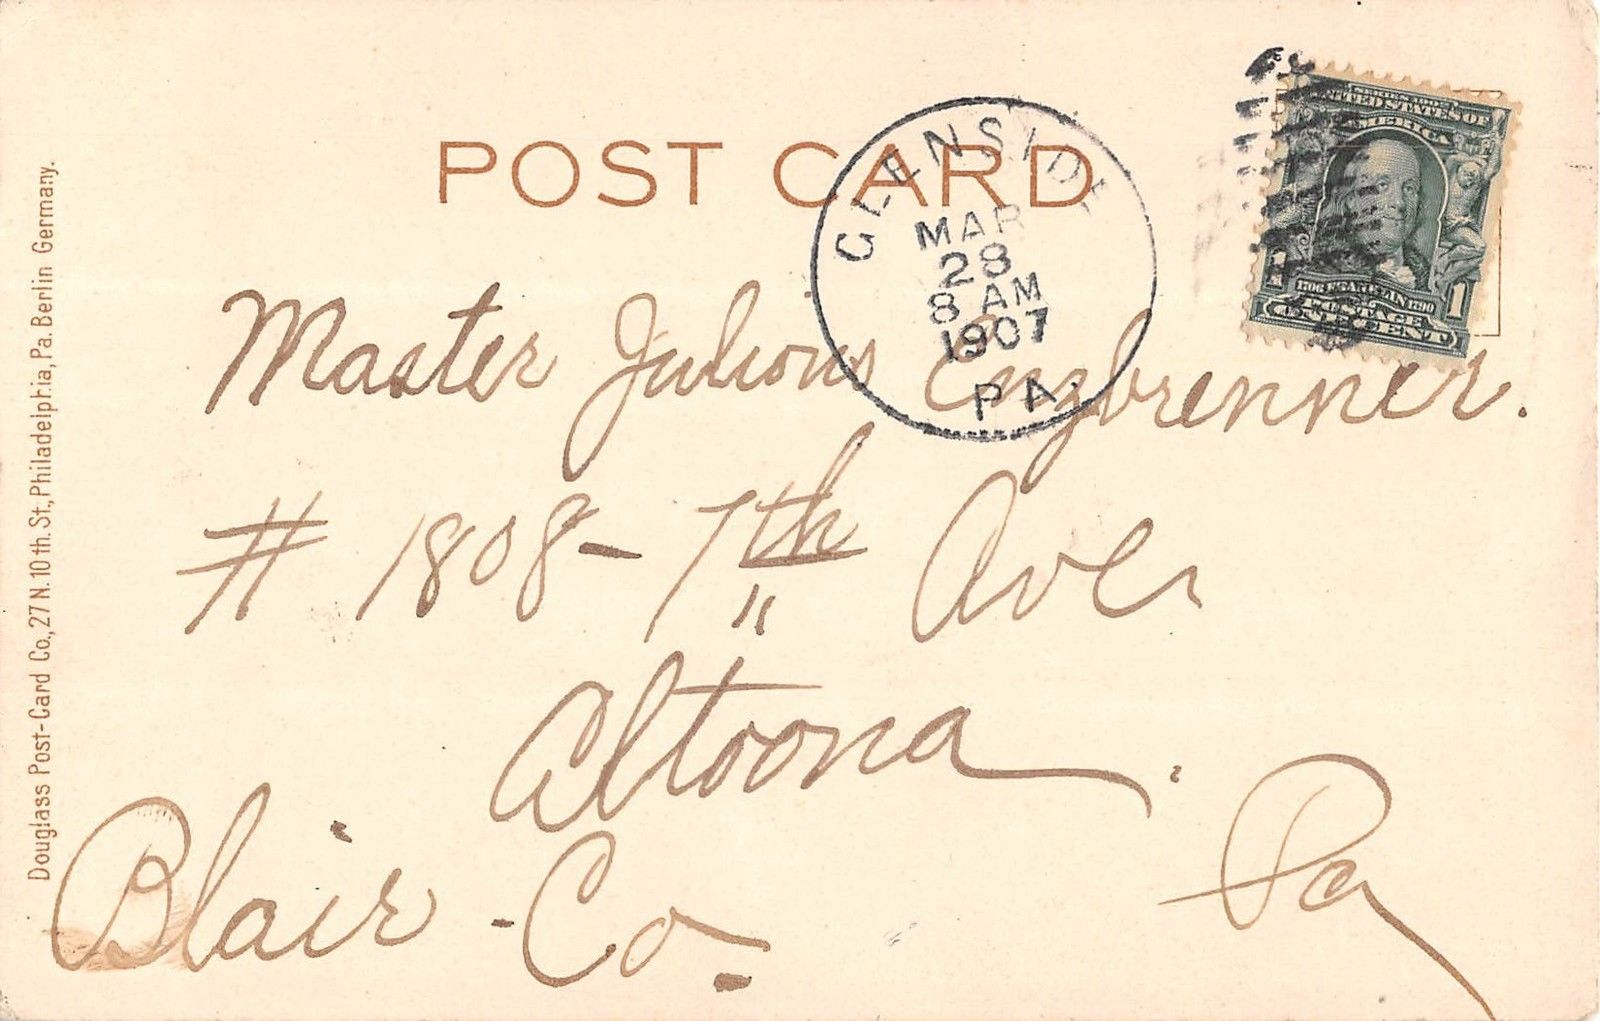 POST CARD
GLENSIDE
MAR
28
8 AM
1907
PA.
SERIES 1902
UNITED STATES OF
AMERICA
1706 FRANKLIN 1790
POSTAGE
1 ONE CENT 1
Master Julious Enzbrenner.
# 1808 – 7th Ave
Altoona.
Blair - Co. Pa
Douglass Post-Card Co., 27 N. 10th. St., Philadelphia, Pa. Berlin Germany.